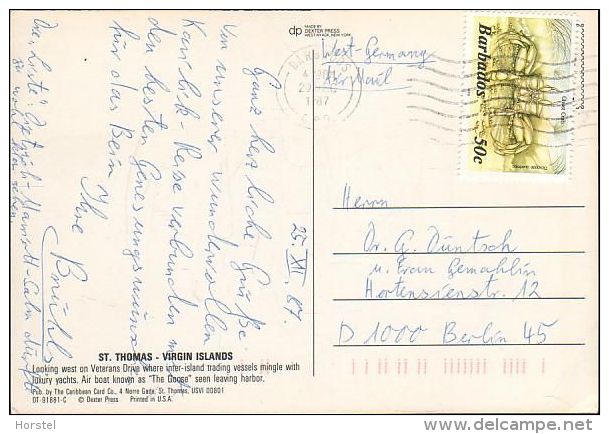 dp
MADE BY
DEXTER PRESS
WEST NYACK, NEW YORK
West Germany
Air Mail
BARBADOS
29
87
Barbados
50c
25. XII. 87.
Ganz herzliche Grüße
von unserer wundervollen
Karibik-Reise verbunden mit
den besten Genesungswünschen
für das Bein
Ihre Brühls
Herrn
Dr. G. Düntsch
u. Frau Gemahlin
Hortensienstr. 12
D 1000 Berlin 45
ST. THOMAS - VIRGIN ISLANDS
Looking west on Veterans Drive where inter-island trading vessels mingle with
luxury yachts. Air boat known as "The Goose" seen leaving harbor.
Pub. by The Caribbean Card Co., 4 Norre Gade, St. Thomas, USVI 00801
DT-91881-C © Dexter Press Printed in U.S.A.
Horstel
DELCAMPE.NET